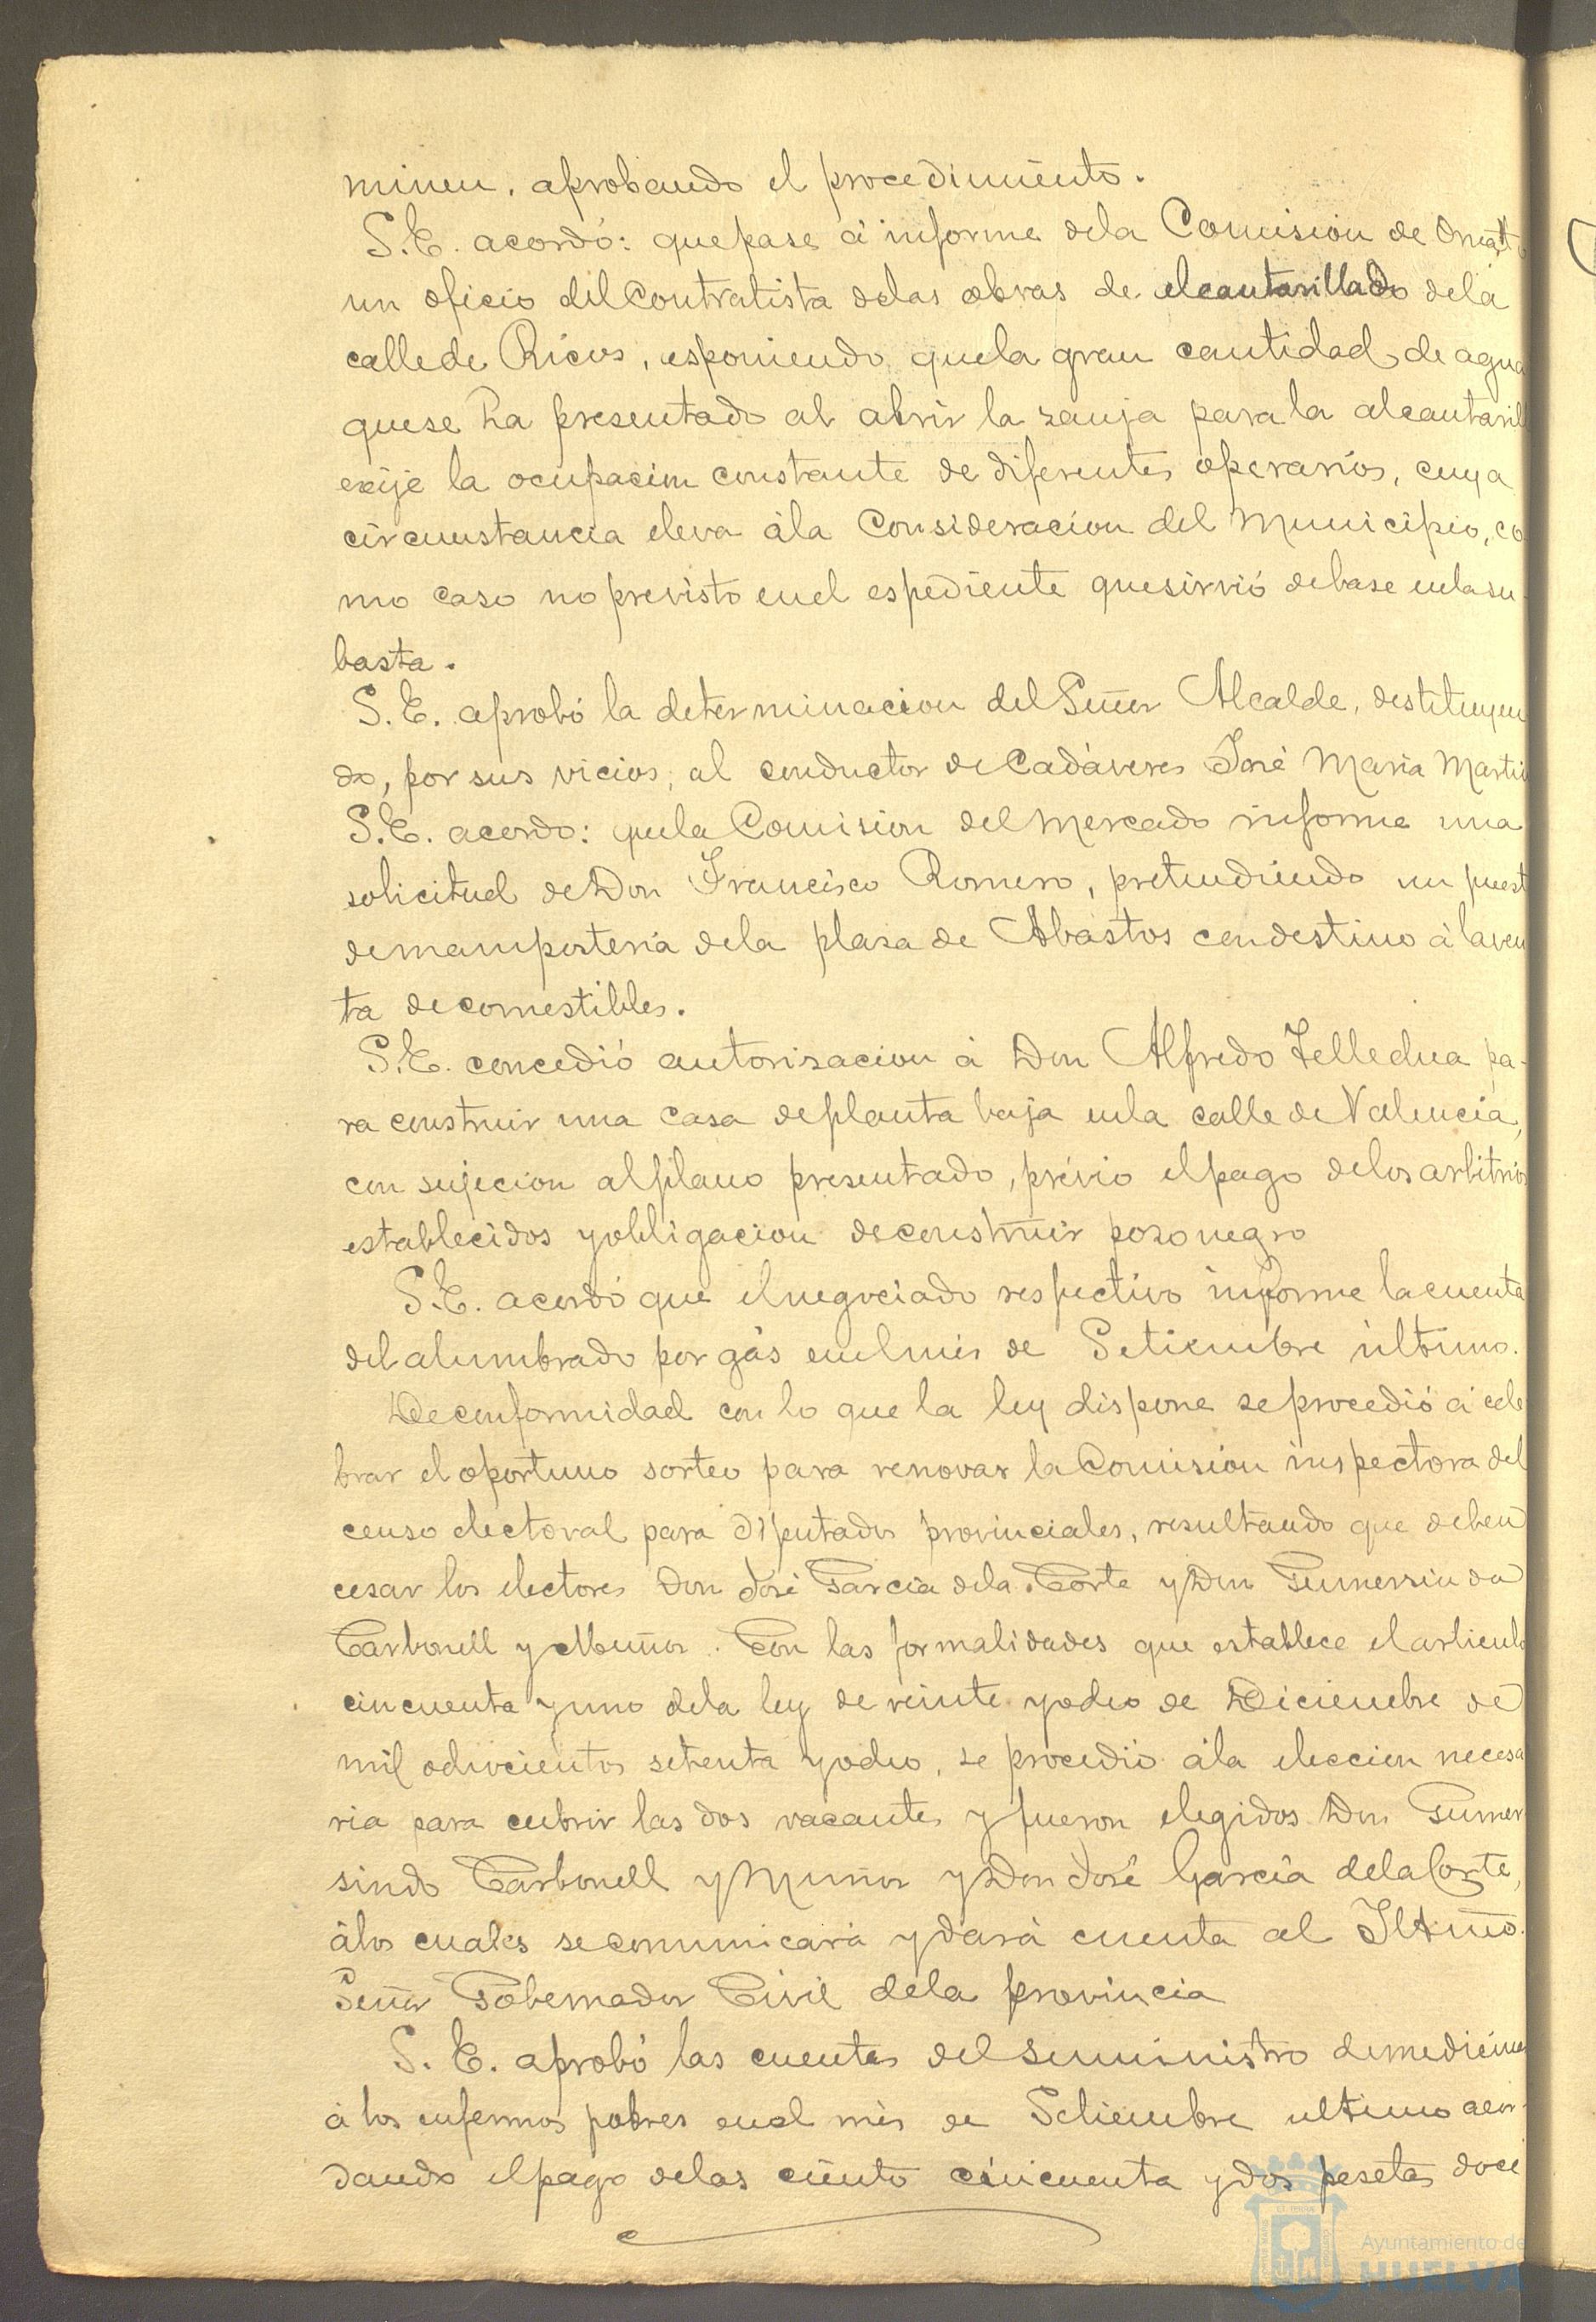 minen, aprobando el procedimiento.
S.E. acordó: que pase á informe de la Comision de Ornato
un oficio del Contratista de las obras de alcantarillado de la
calle de Ricos, esponiendo que la gran cantidad de agua
que se ha presentado al abrir la zanja para la alcantarill
exije la ocupacion constante de diferentes operarios, cuya
circunstancia eleva á la Consideracion del Municipio, co
mo caso no previsto en el espediente que sirvió de base en la su
basta.
S.E. aprobó la determinacion del Señor Alcalde, destituyen
do, por sus vicios, al conductor de Cadáveres José Maria Marti
S.E. acordo: que la Comision del Mercado informe una
solicitud de Don Francisco Romero, pretendiendo un puest
de mamposteria de la plaza de Abastos con destino á la ven
ta de comestibles.
S.E. concedió autorizacion á Don Alfredo pa-
ra construir una casa de planta baja en la calle de Valencia,
con sujecion al plano presentado, prévio el pago de los arbitrios
establecidos y obligacion de construir pozo negro
S.E. acordó que el negociado respectivo informe la cuenta
del alumbrado por gás en el mes de Setiembre último.
De conformidad con lo que la ley dispone se procedió á cele
brar el oportuno sorteo para renovar la Comision inspectora del
censo electoral para Diputados provinciales, resultando que deben
cesar los electores Don José Garcia de la Corte y Don Gumersindo
Carbonell y Muñoz. Con las formalidades que establece el articulo
cincuenta y uno de la ley de veinte y ocho de Diciembre de
mil ochocientos setenta y ocho, se procedió á la eleccion necesa
ria para cubrir las dos vacantes y fueron elegidos Don Gumer
sindo Carbonell y Muñoz y Don José Garcia de la Corte,
á los cuales se comunicará y dará cuenta al Iltmo.
Señor Gobernador Civil de la provincia
S. E. aprobó las cuentas del suministro de medicinas
á los enfermos pobres en el mes de Setiembre ultimo acor-
dando el pago de las ciento cincuenta y dos pesetas doce
Ayuntamiento de
HUELVA